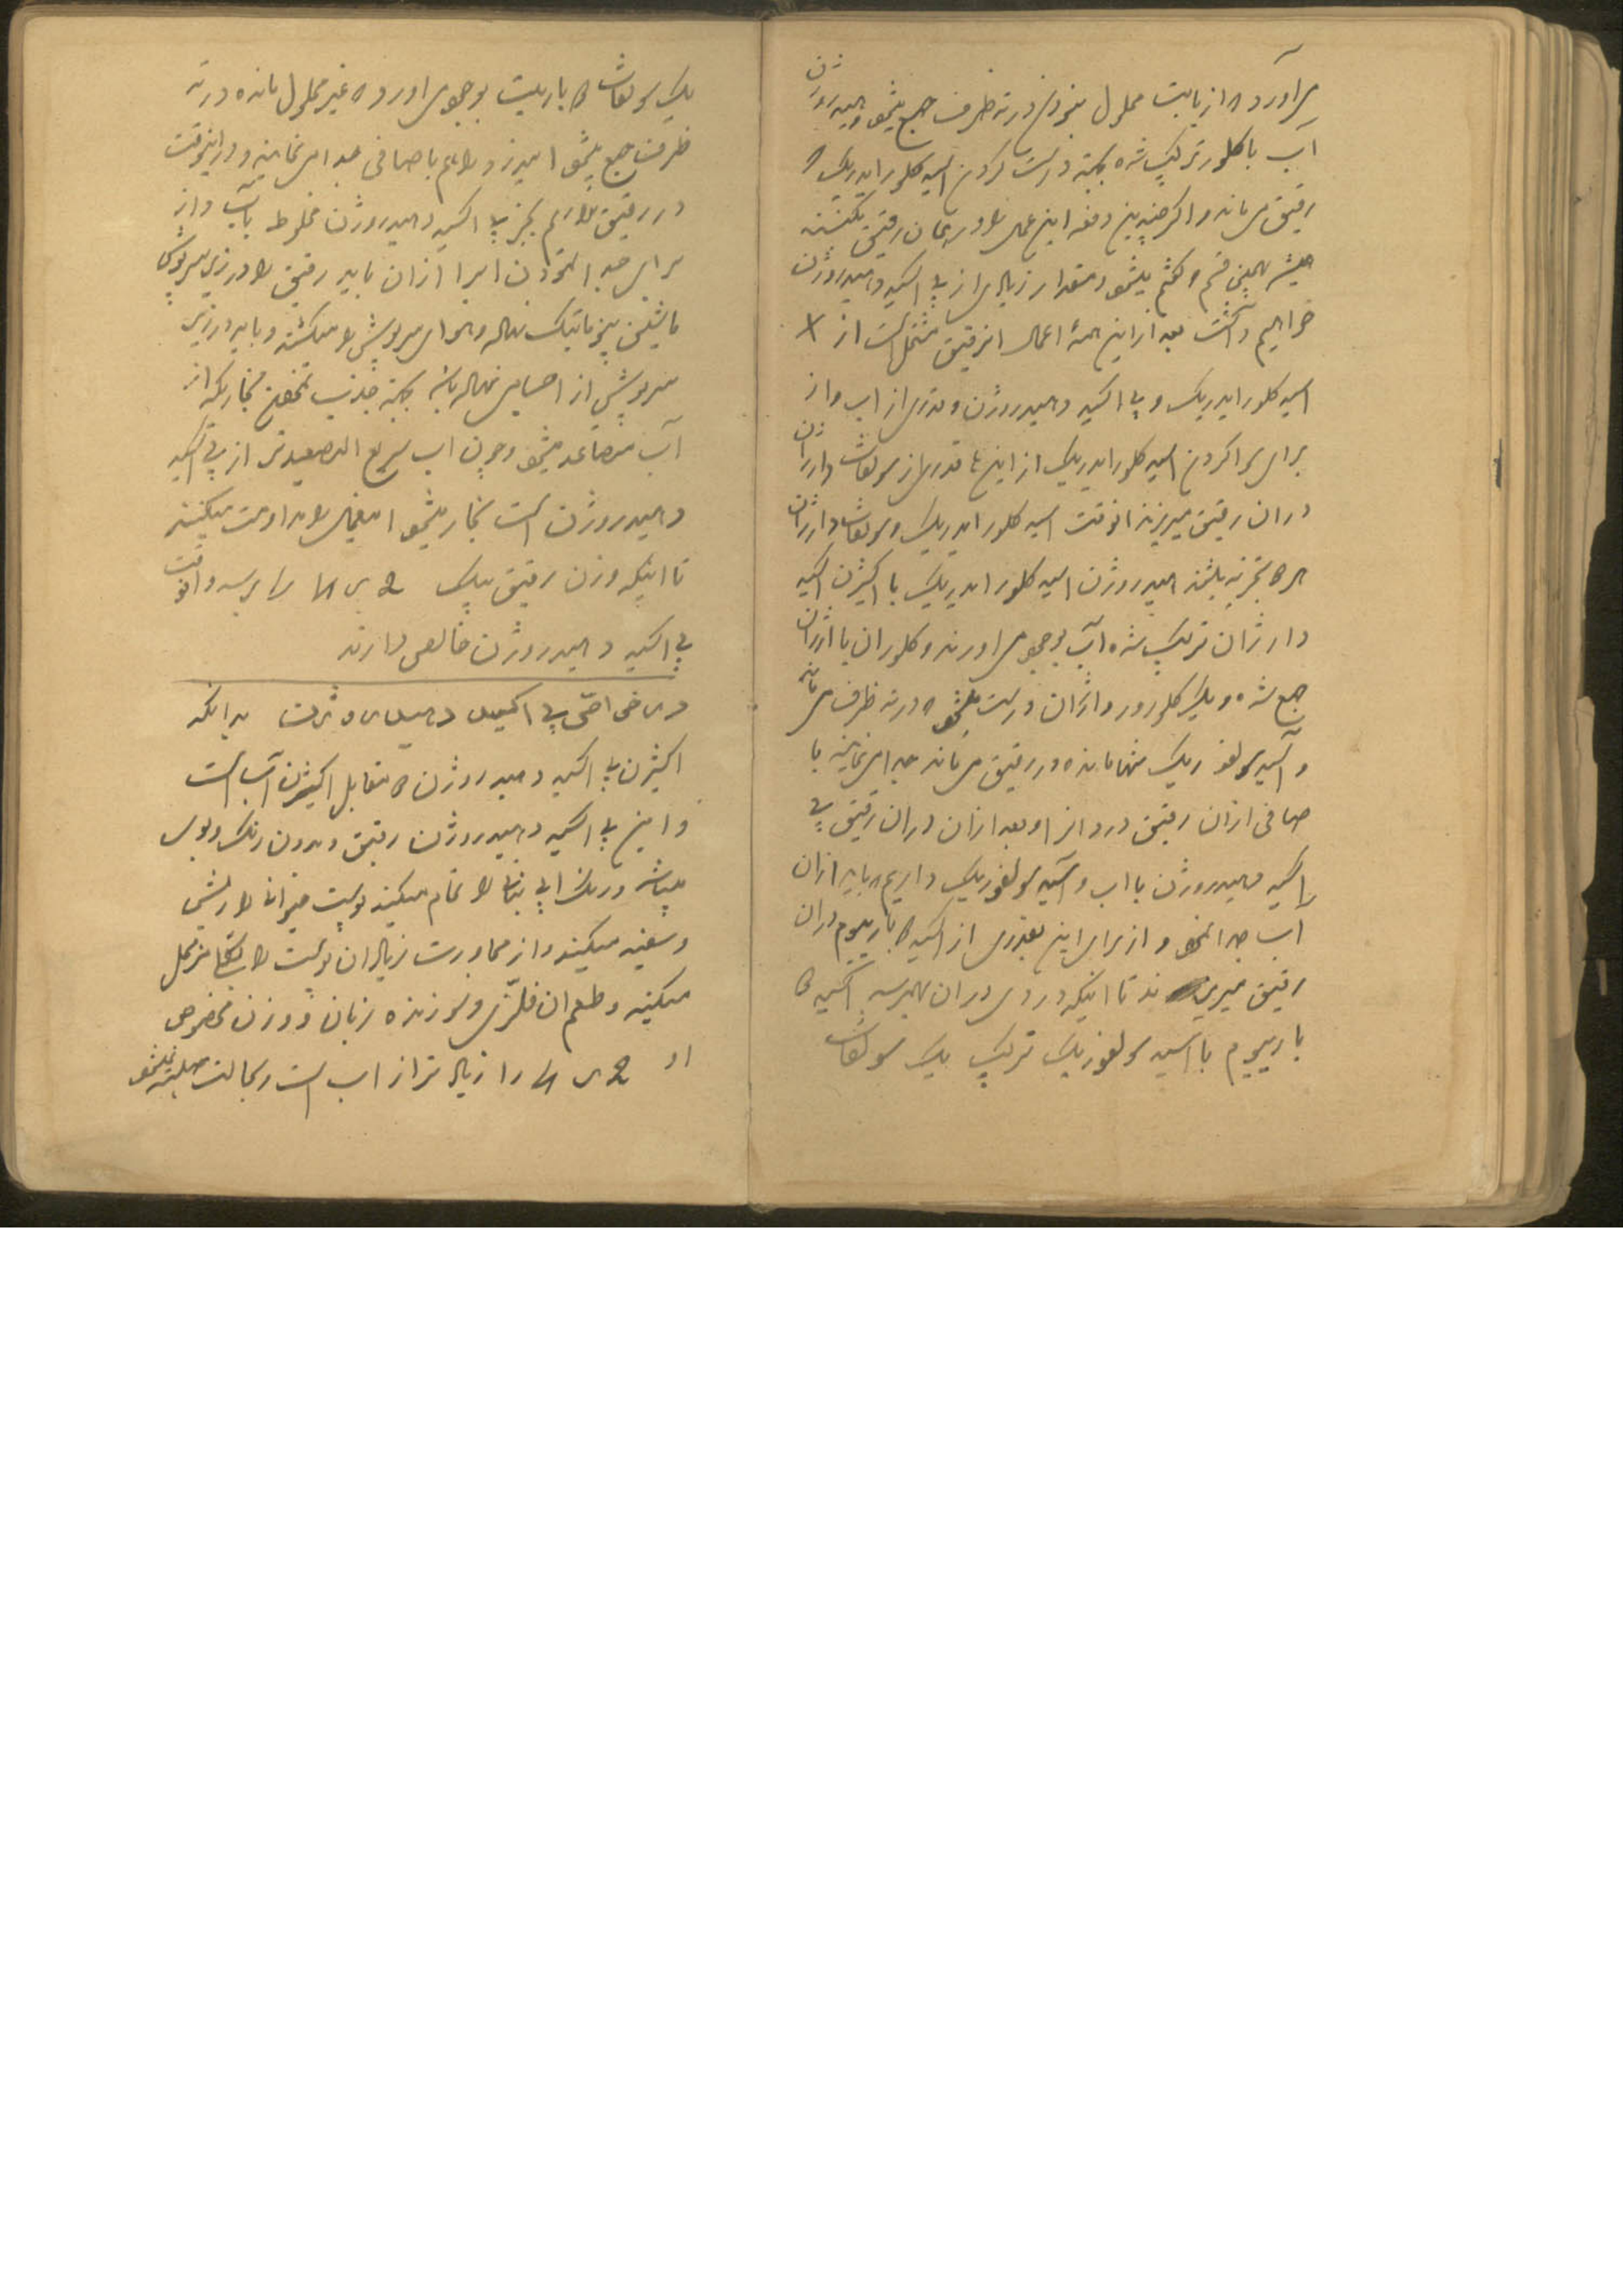 می‌آورد که از باریت محلول میخوری در ته ظرف جمع میشود و هیدروژن
آب با کلور ترکیب شده بجهة درست کردن اسید کلورایدریک که
رقیق می‌ماند و اگر چندین دفعه این عمل را در همان رقیق بکنند
همیشه همین قسم و کثیر میشود و مقدار زیادی از پی اکسید و هیدروژن
خواهیم داشت بعد از این همه اعمال انرقیق مشتمل است از
اسید کلورایدریک و پی اکسید و هیدروژن و قدری از اب و از
برای سوا کردن اسید کلورایدریک از اینها قدری از سولفات دارژان
دران رقیق میریزند انوقت اسید کلورایدریک و سولفات دارژان
هر دو تجزیه میشوند هیدروژن اسید کلورایدریک با اکسیژن اکسید
دارژان ترکیب شده آب بوجود می‌اورند و کلور ان با ارژان
جمع شده و یک کلورور دارژان درست میشود که در ته ظرف می‌ماند
و آسید سولفوریک تنها مانده در رقیق می‌ماند جدا می‌نمایند با
صافی ازان رقیق درد انرا و بعد ازان دران رقیق پی
اکسید هیدروژن با اب و آسید سولفوریک داریم که باید ازان
اب جدا نمود و از برای این بقدری از اکسید باریوم دران
رقیق میریزند تا اینکه دردی دران بهم رسد اکسید
باریوم با اسید سولفوریک ترکیب یک سولفات
یک سولفات باریت بوجود می‌اورد که غیر محلول مانده در ته
ظرف جمع میشود اندرد را هم با صافی جدا می‌نمایند و در اینوقت
در رقیق نداریم بجز پی اکسید و هیدروژن مخلوط بآب و از
برای جدا نمودن انرا ازان باید رقیق را در زیر سرپوش
ماشین پنوماتیک نهاده و هوای سرپوش را میکشند و باید در زیر
سرپوش از اجسامی نهاده باشد بجهة جذب نمودن بخاریکه از
آب متصاعد میشود و چون اب سریع التصعیدتر از پی اکسید
و هیدروژن است بخار میشود اینعمل را مداومت میکنند
تا اینکه وزن رقیق بیک 2 ر 4 را برسد و انوقت
پی اکسید و هیدروژن خالص دارند
در خواص پی اکسید و هیدروژن بدانکه
اکسیژن پی اکسید و هیدروژن دو مقابل اکسیژن آب است
و این پی اکسید و هیدروژن رقیق و بدون رنک و بوی
میباشد و رنک ابی نباتی را تمام میکند پوست حیوانات را ریش
و سفید میکند و از مجاورت زیاد ان پوست را بتجا مضمحل
میکند و طعم ان فلزّی و سوزنده زبان و وزن مخصوص
او 2 ر 4 را زیاد تر از اب است و بحالت صلبیّه نمیشود